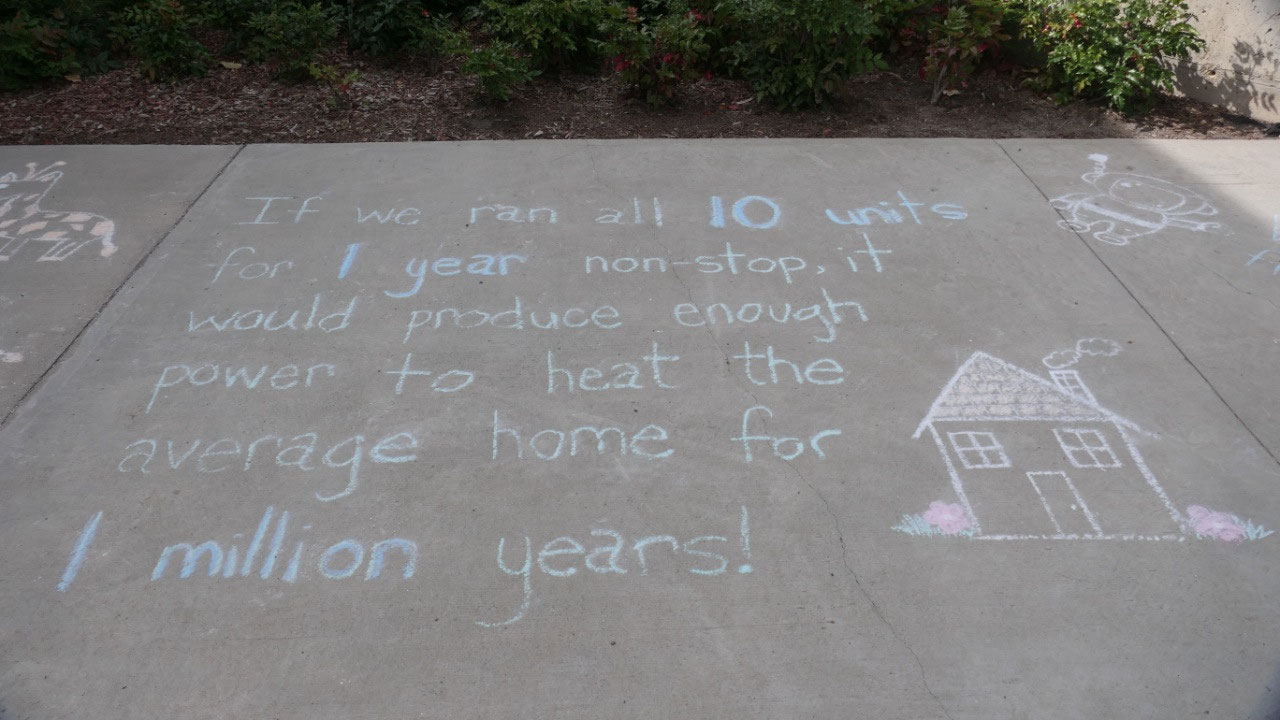 If we ran all 10 units
for 1 year non-stop, it
would produce enough
power to heat the
average home for
1 million years!